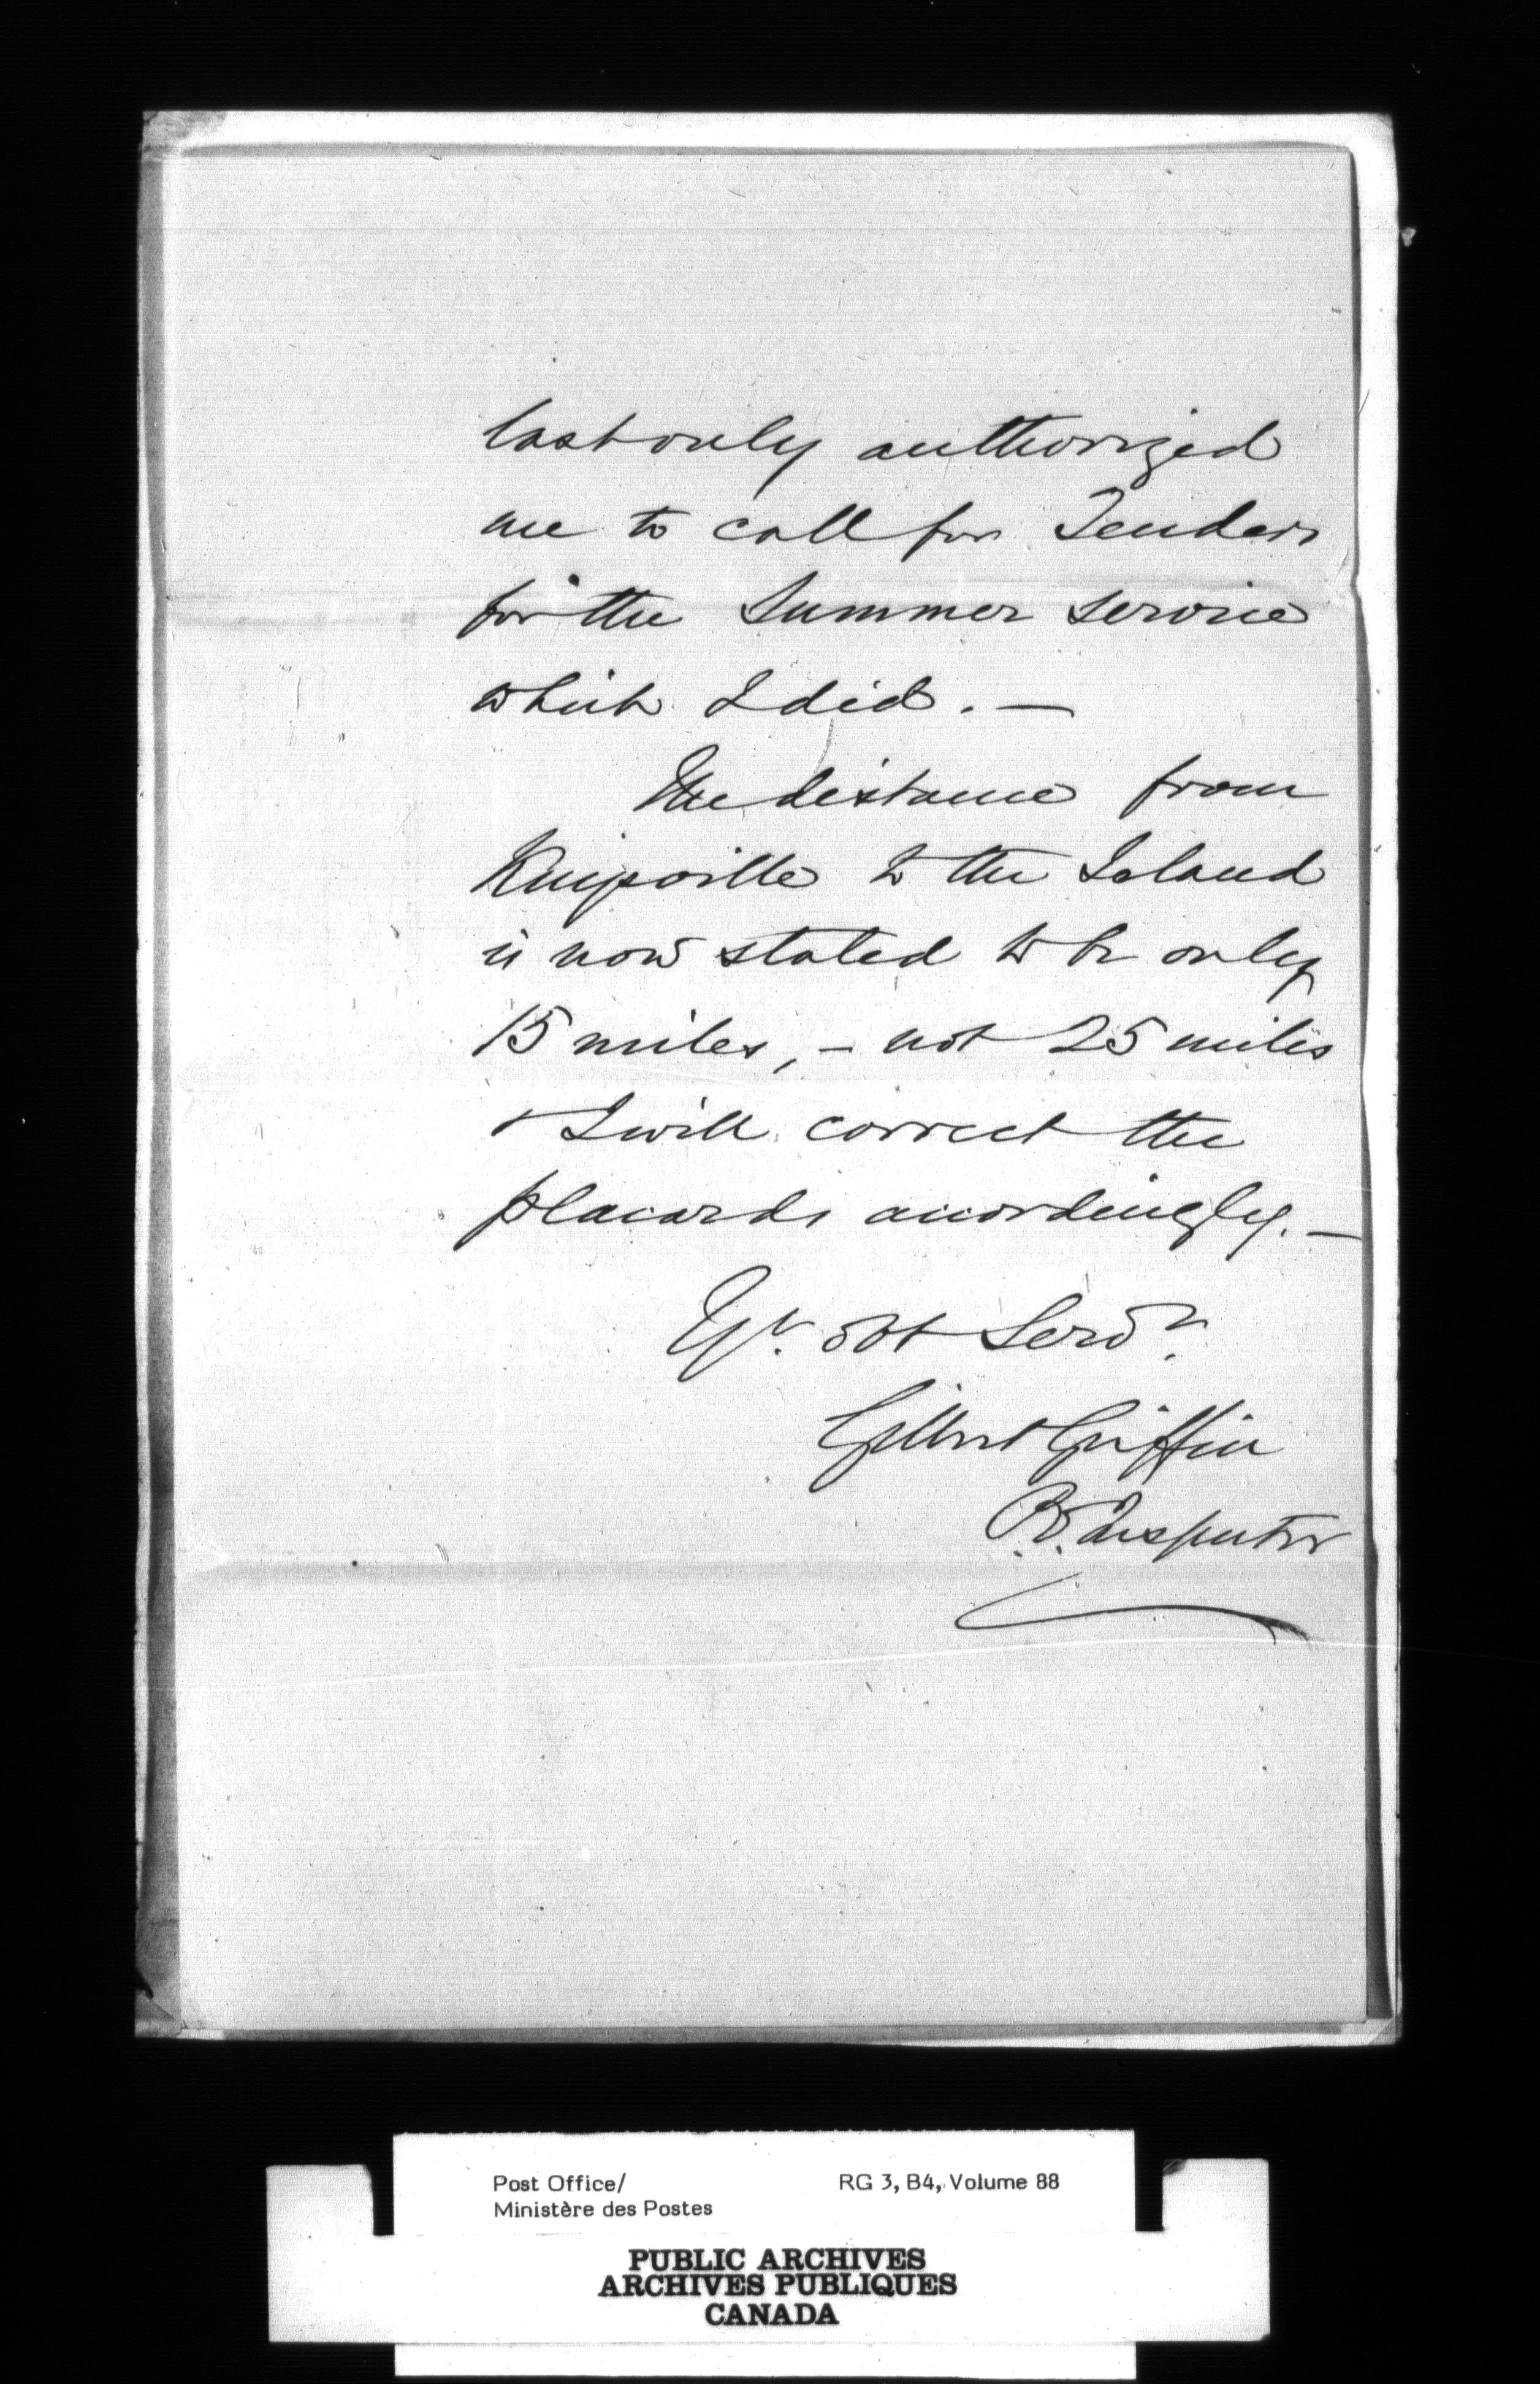 last only authorized
me to call for Tenders
for the Summer service
which I did. —
The distance from
Kingsville to the Island
is now stated to be only
15 miles, – not 25 miles
& I will correct the
placards accordingly. —
Yr. obt Servr.
Gilbert Griffin
P.O. Inspector
Post Office/
Ministère des Postes
RG 3, B4, Volume 88
PUBLIC ARCHIVES
ARCHIVES PUBLIQUES
CANADA